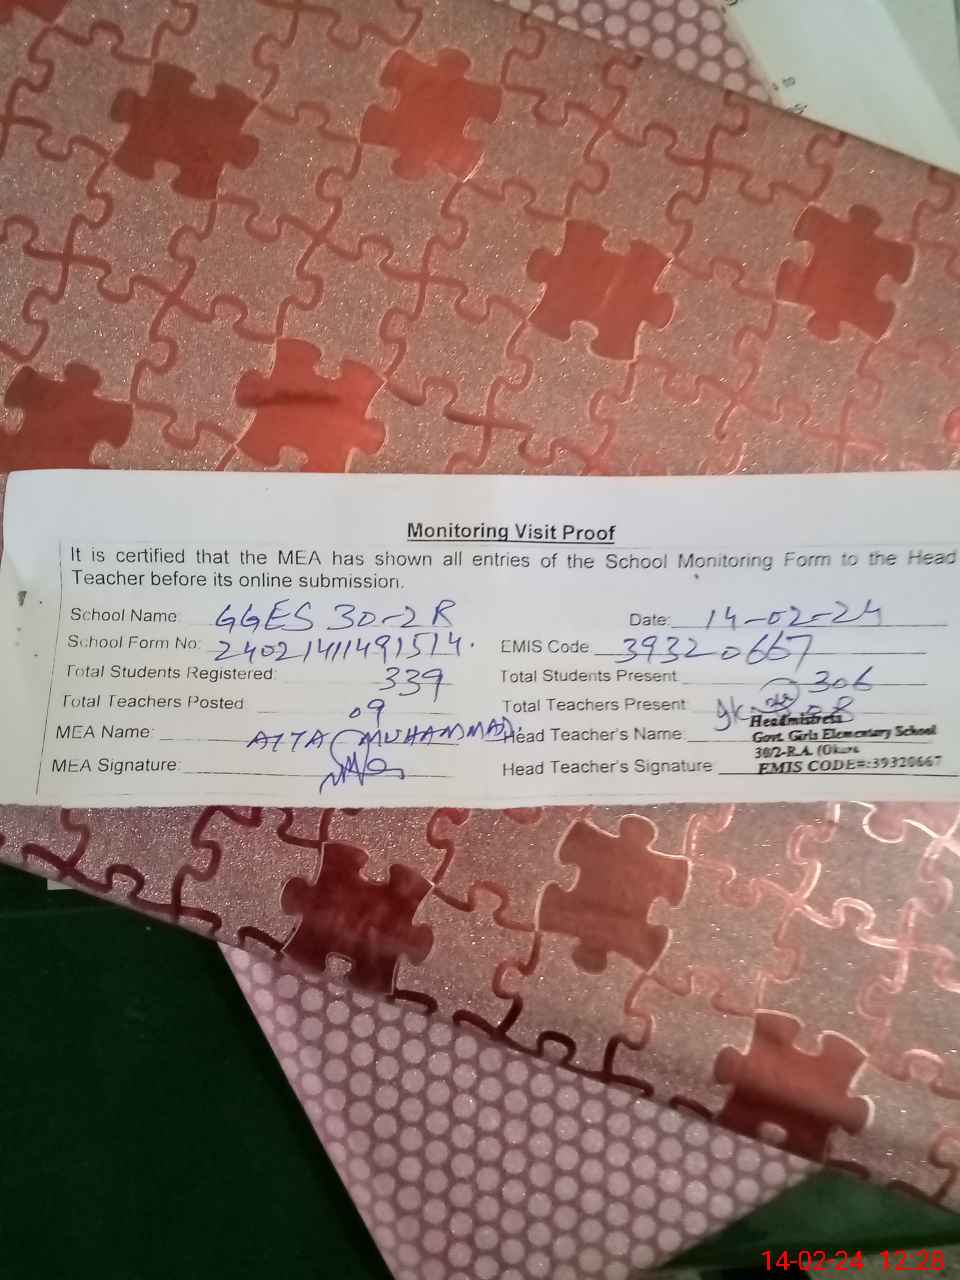 Monitoring Visit Proof
It is certified that the MEA has shown all entries of the School Monitoring Form to the Head
Teacher before its online submission.
School Name: GGES 30-2R Date: 14-02-24
School Form No: 24021411491514. EMIS Code 39320667
Total Students Registered: 339 Total Students Present 306
Total Teachers Posted 09 Total Teachers Present 08
MEA Name: ATTA MUHAMMAD. Head Teacher's Name:
Headmistress
Govt. Girls Elementary School
30/2-R.A. (Okara
MEA Signature: Head Teacher's Signature EMIS CODE#:39320667
14-02-24 12:28